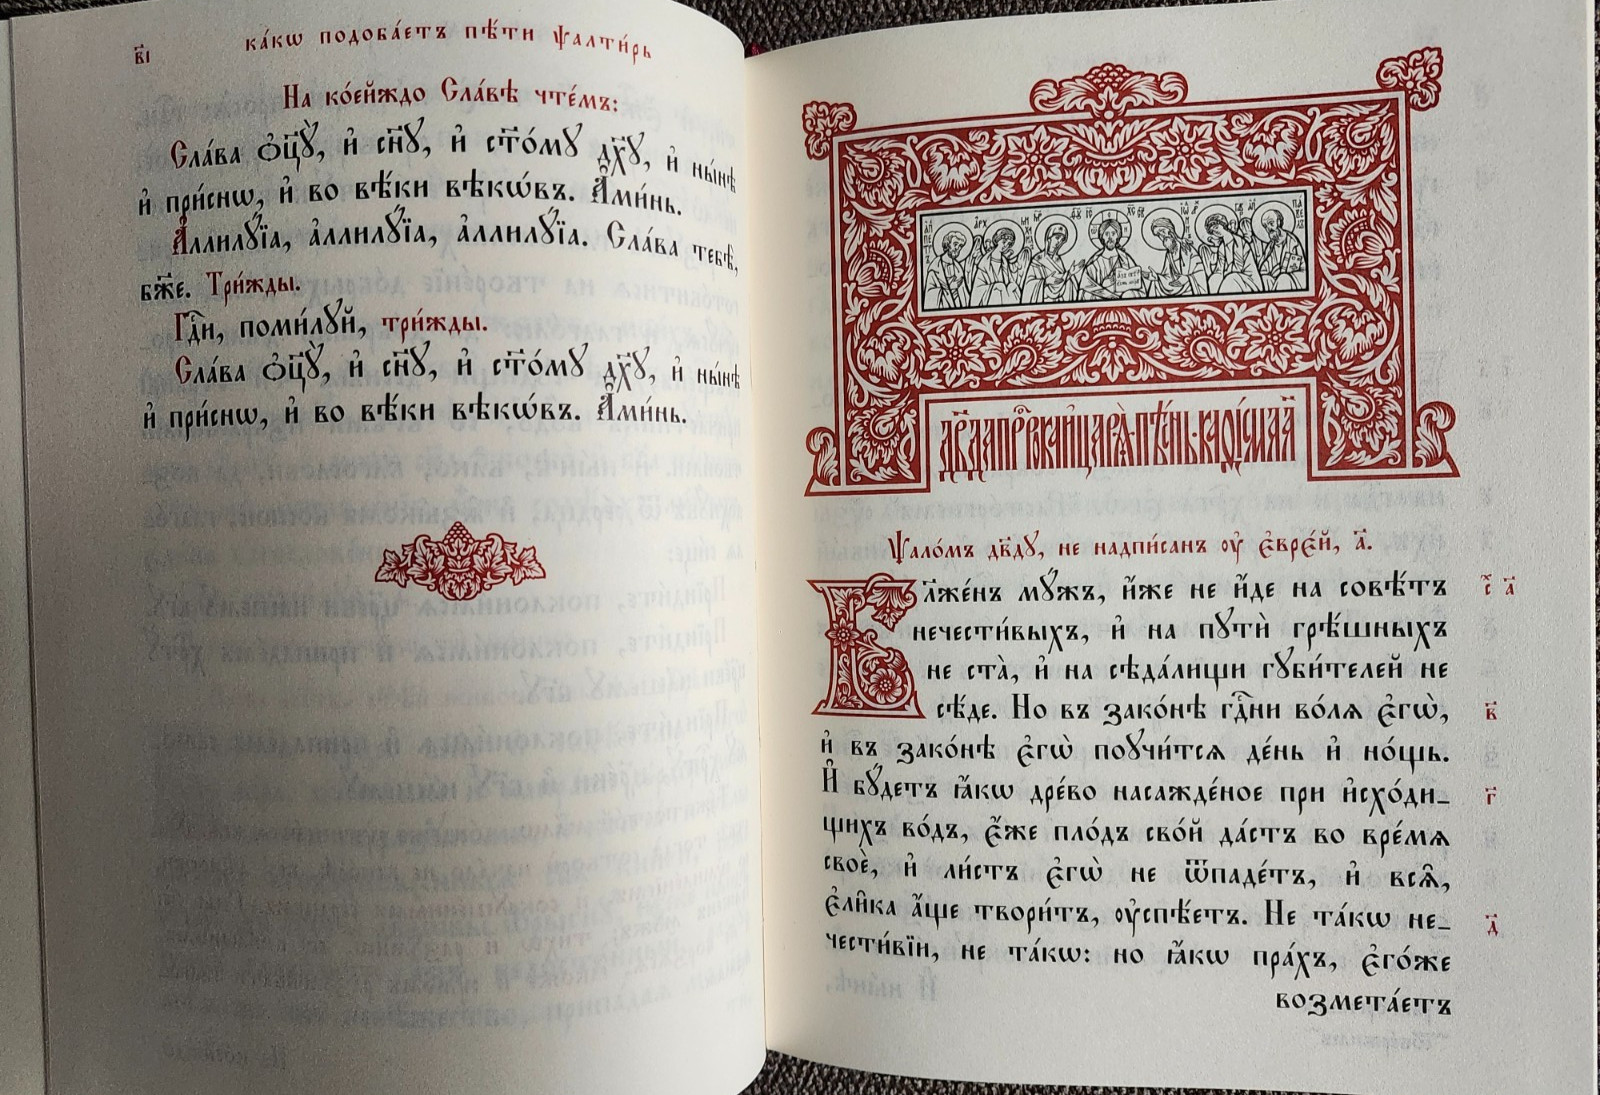 в҃і
ка́кѡ подоба́етъ пѣ́ти ѱалти́рь
На ко́ейждо Сла́вѣ чте́мъ:
Сла́ва ѻ҆ц҃ꙋ̀, и҆ сн҃ꙋ, и҆ ст҃о́мꙋ дх҃ꙋ, и҆ ны́нѣ
и҆ при́снѡ, и҆ во вѣ́ки вѣкѡ́въ. А҆ми́нь.
А҆ллилꙋ́їа, а҆ллилꙋ́їа, а҆ллилꙋ́їа. Сла́ва тебѣ̀,
бж҃е. Три́жды.
Гдⷭ҇и, поми́лꙋй, три́жды.
Сла́ва ѻ҆ц҃ꙋ̀, и҆ сн҃ꙋ, и҆ ст҃о́мꙋ дх҃ꙋ, и҆ ны́нѣ
и҆ при́снѡ, и҆ во вѣ́ки вѣкѡ́въ. А҆ми́нь.
Ѱало́мъ дв҃дꙋ, не надпи́санъ оу҆ є҆вре́й, а҃.
Бл҃же́нъ мꙋ́жъ, и҆́же не и҆́де на совѣ́тъ
нечести́выхъ, и҆ на пꙋтѝ грѣ́шныхъ
не ста̀, и҆ на сѣда́лищи гꙋби́телей не
сѣ́де. Но въ зако́нѣ гдⷭ҇ни во́лѧ є҆гѡ̀,
и҆ въ зако́нѣ є҆гѡ̀ поꙋчи́тсѧ де́нь и҆ но́щь.
И҆ бꙋ́детъ ꙗ҆́кѡ дре́во насажде́ное при и҆схо́ди_
щихъ во́дъ, є҆́же пло́дъ сво́й да́стъ во вре́мѧ
своѐ, и҆ ли́стъ є҆гѡ̀ не ѿпаде́тъ, и҆ всѧ̑,
є҆ли̑ка а҆́ще твори́тъ, оу҆спѣ́етъ. Не та́кѡ не_
чести́вїи, не та́кѡ: но ꙗ҆́кѡ пра́хъ, є҆го́же
возмета́етъ
а҃
в҃
г҃
д҃